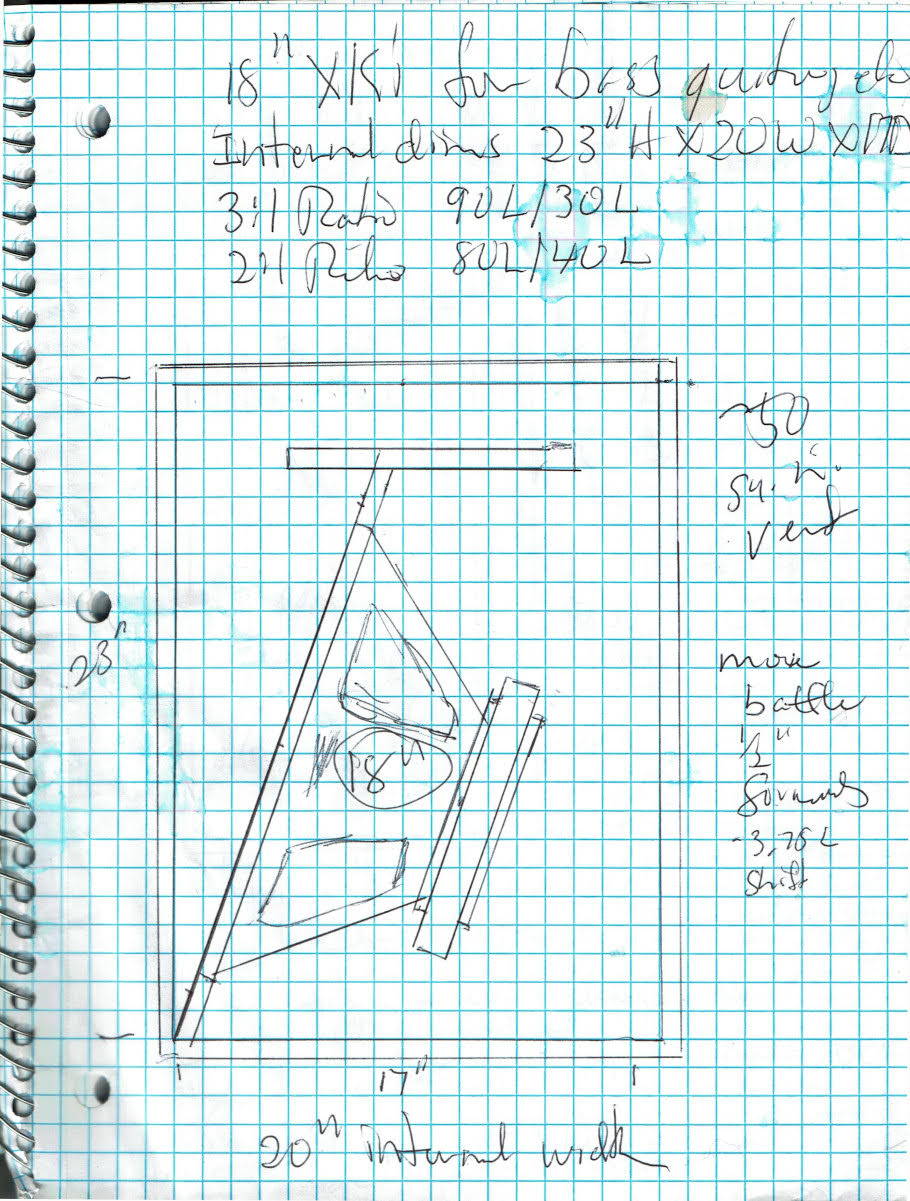 18" XKi for bass guitar, elo
Internal dims 23"H X20W X17D
3:1 Ratio 90L/30L
2:1 Ratio 80L/40L
~50
sq. in.
vent
23"
more
baffle
1/2"
forwards
-3.75L
shift
18"
17"
20" internal width